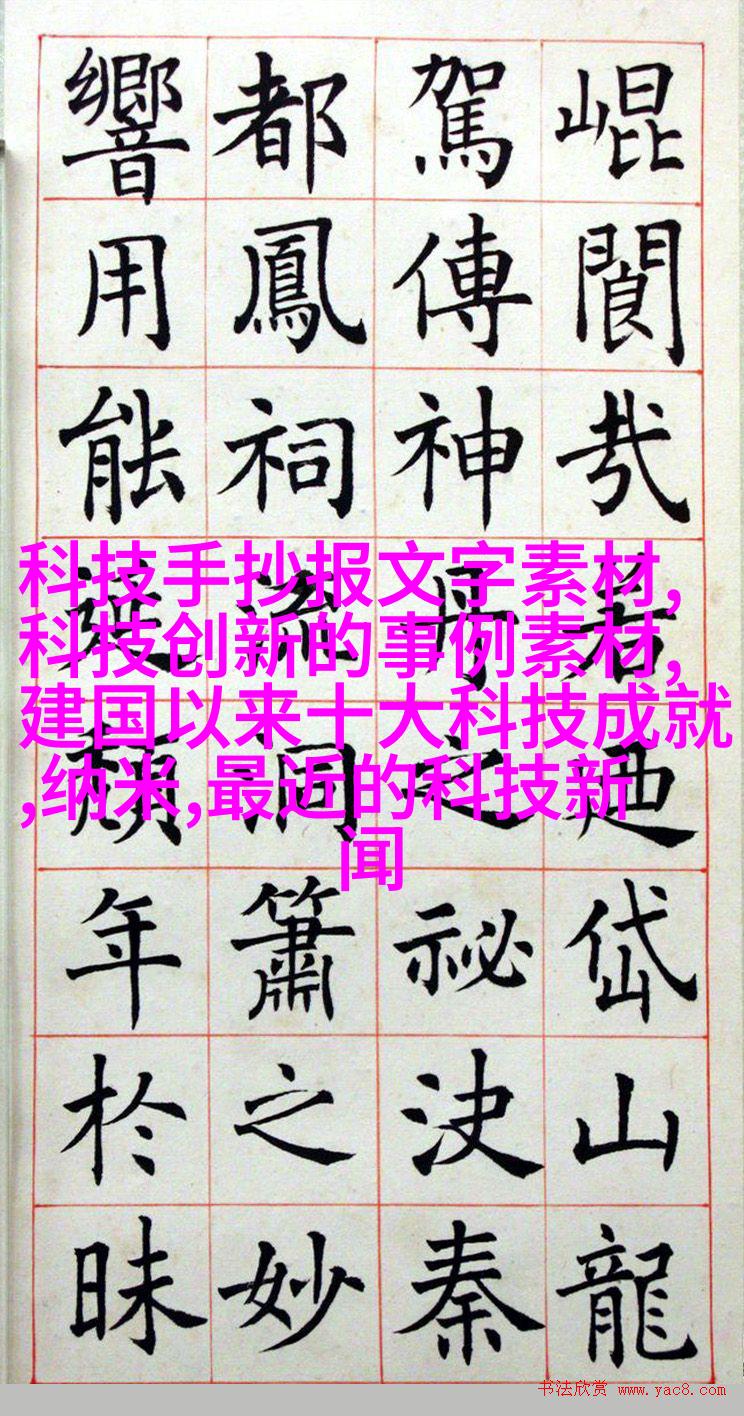 崐閬若廼岱山龍
駕傳神丹之祕決秦
都鳳祠流洞簫之妙
響用能年於昧
科技手抄报文字素材,
科技创新的事例素材,
建国以来十大科技成就
,纳米,最近的科技新
闻
书法欣赏 www.yac8.com